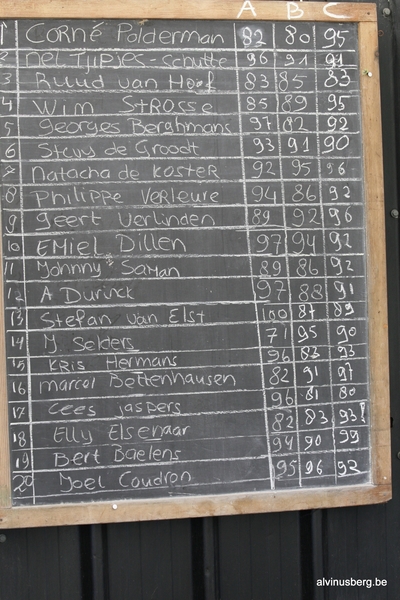 A B C
1 CORNÉ Polderman 82 80 95
2 Nel Tijpjes-Schutte 96 91 91
3 Ruud van Hoof 83 85 83
4 Wim STROSSE 85 89 95
5 Georges Berghmans 97 82 92
6 de Groodt 93 91 90
7 Natacha de KOSTER 92 95 96
8 PHILIPPE VERLEURE 94 86 92
9 geert Verlinden 89 92 96
10 EMiEL Dillen 97 94 92
11 Johnny Saman 89 86 92
12 A Durinck 97 88 91
13 Stefan van Elst 100 87 89
14 J. Selders 71 95 90
15 KRIS Hermans 96 83 93
16 marcel Bettenhausen 82 91 97
17 Cees jaspers 96 81 80
18 Elly Elsenaar 82 83 93!
19 Bert Baelens 94 90 99
20 Joel Coudron 95 96 93
alvinusberg.be